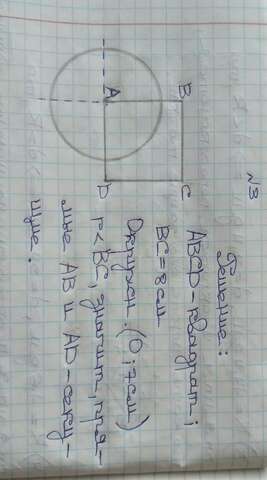 №3
Решение:
ABCD-квадрат;
BC=8см
Окружн. (O;7см)
r<BC, значит, пря-
мые AB и AD-секу-
щие.
A
B
C
D